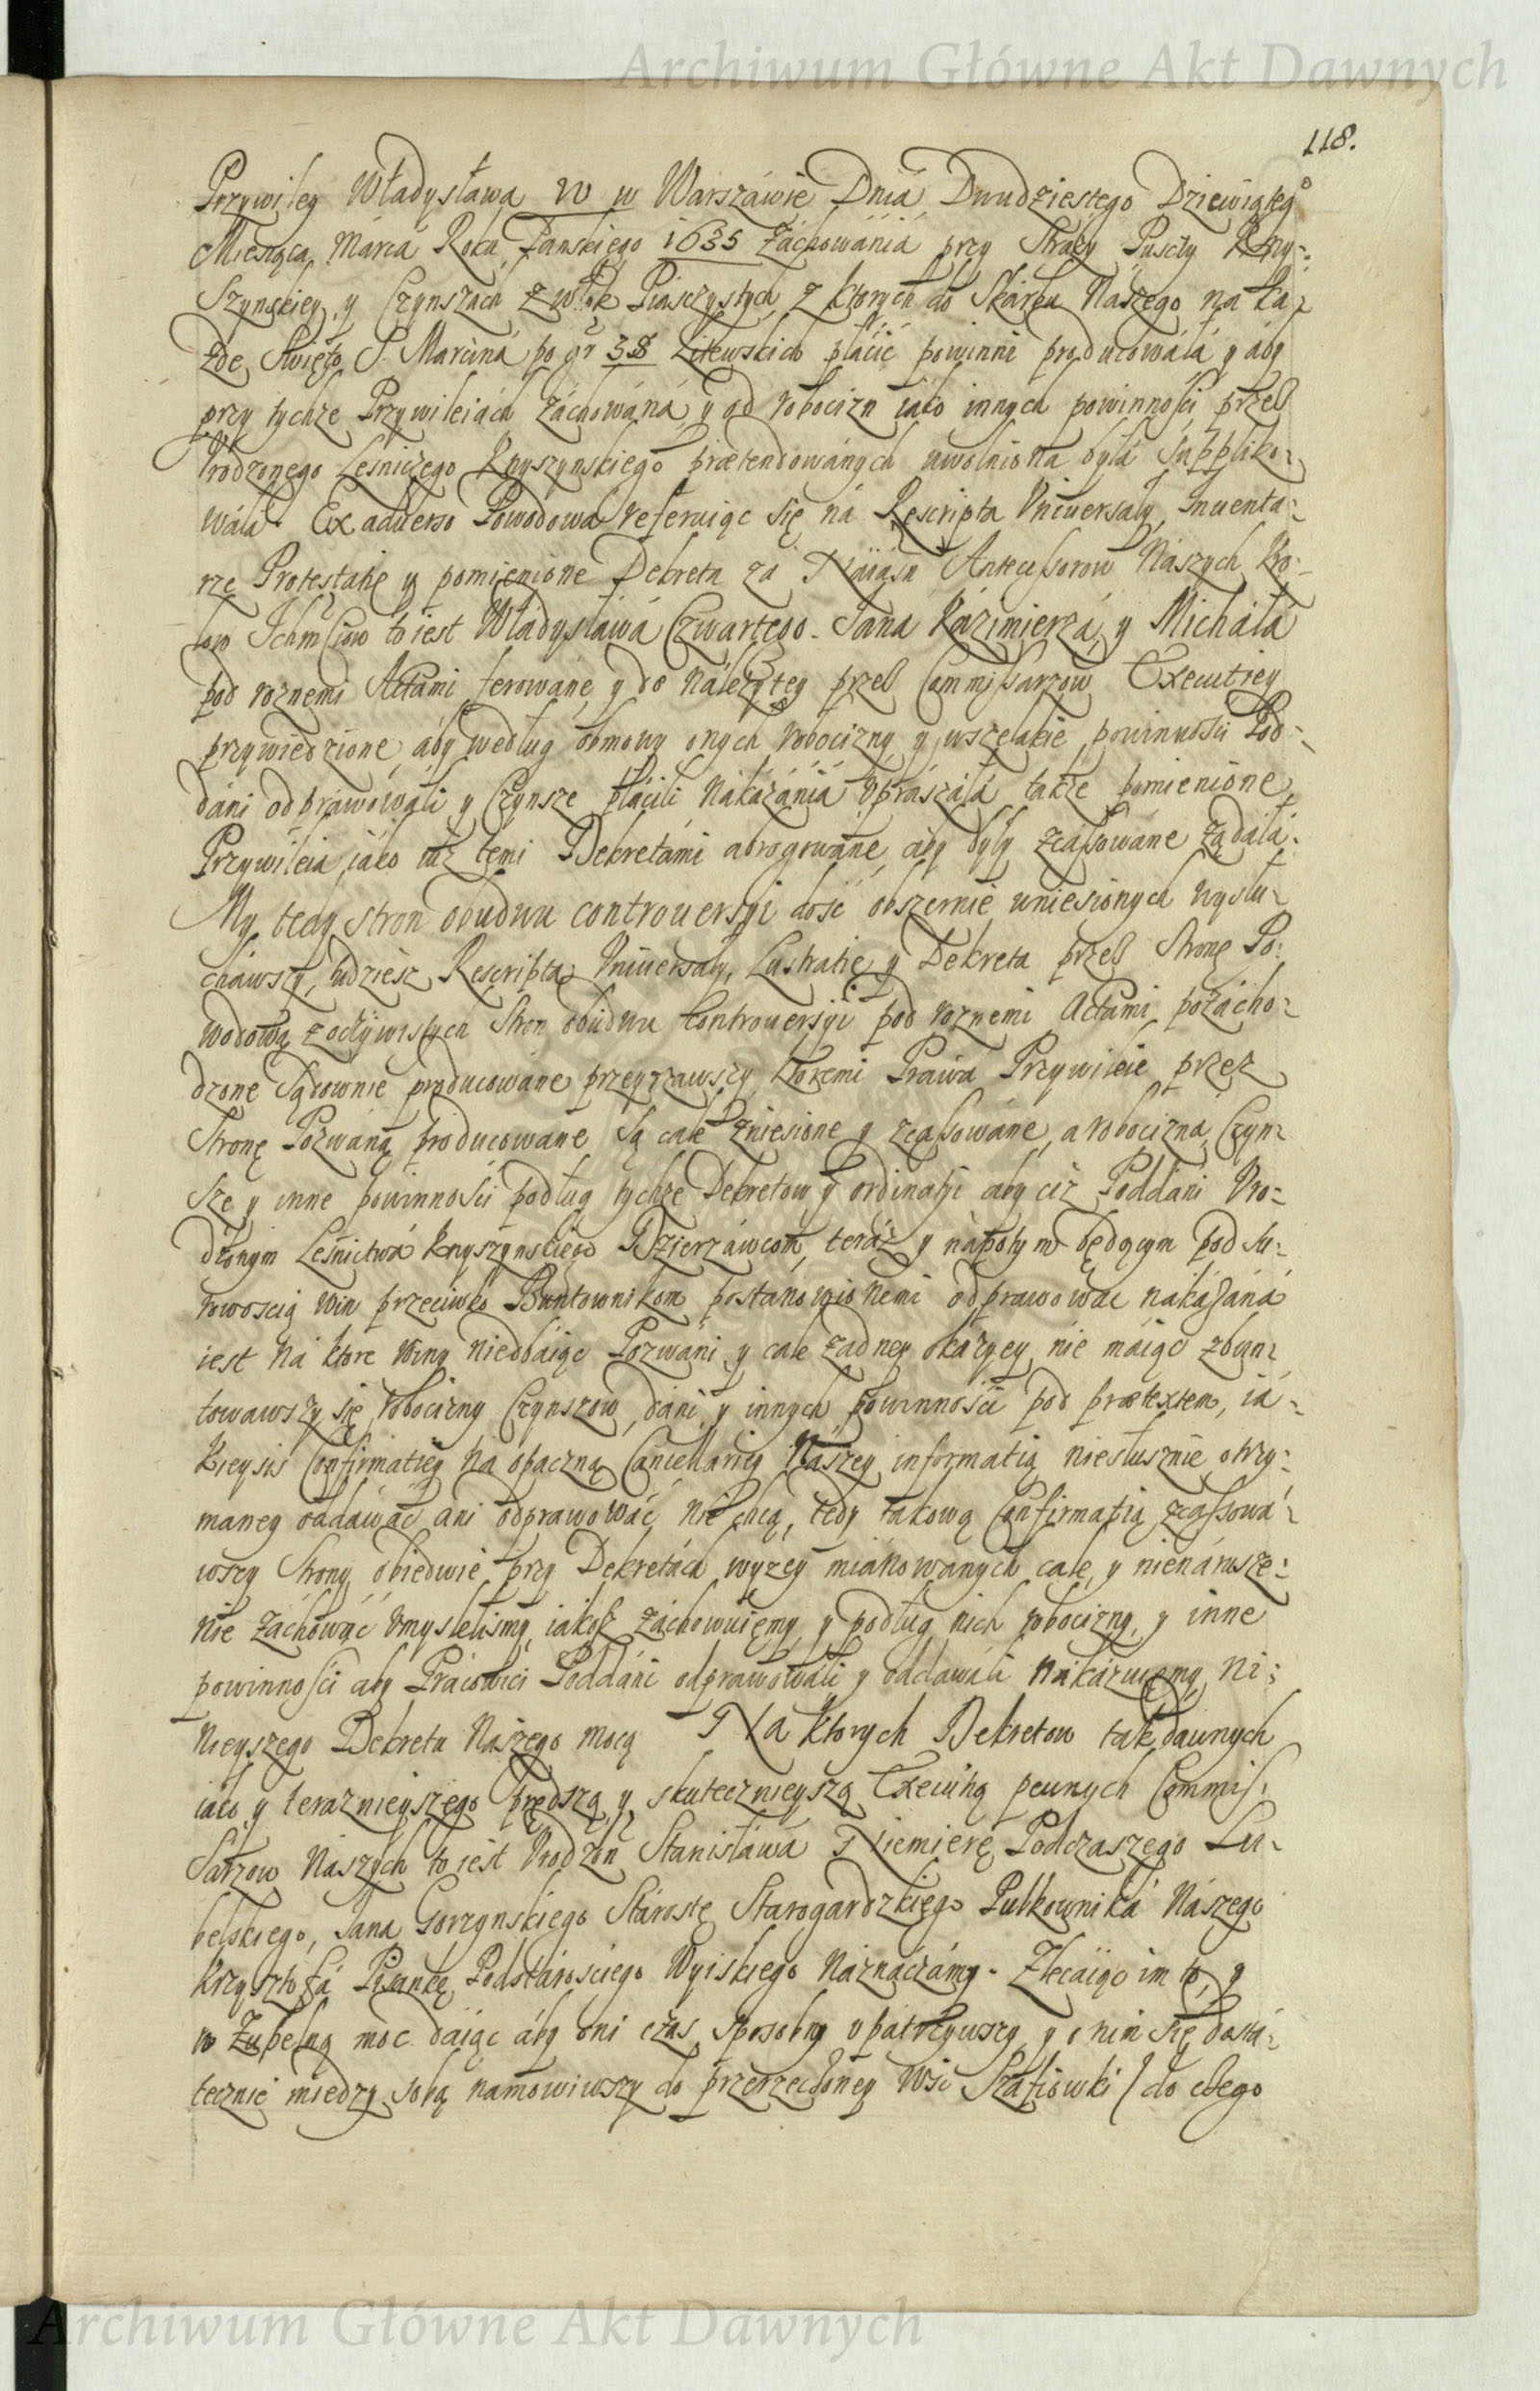 Archiwum Główne Akt Dawnych
118.
Przywiley Władysława IV w Warszáwie Dniá Dwudziestego Dziewiąteg°
Miesiąca Márca Roku Pańskiego 1635 Záchowániá przy Straży Puscży Kny-
Szyńskiey, y Czynszách z włok Piasczystych, z ktorych do Skárbu Nászego na ka-
żde Swięto S. Marciná po gr 38 Litewskich płácić powinni producowáłá y áby
przy tychże Przywileiách záchowáná y od robocizn iáko innych powinnosci przes
Vrodzonego Lesniczego Knyszynskiego prætendowánych uwolnioná byłá suppliko-
wáłá. Ex aduerso Powodowa referuiąc się ná Rescripta Vniuersały, Inuenta-
rze Protestatie y pomienione Dekreta zá Náiásn Antecessorow Nászych Kro-
low Ichmsciow to iest Władysłáwá Czwartego. Janá Kázimierzá, y Micháłá
pod roznemi Aktami ferowáne, y do należytey przes Commissarzow Executiey
przywiedzione, áby według osnowy onych robocizny y wszelákie powinności Pod-
dáni odpráwowáli y Czynsze płácili Nákázániá vpraszáłá tákże pomienione
Przywileia iáko iuż temi Dekretámi abrogowáne, aby były zcassowáne żądáłá.
My tedy stron obudwu controuersyi dość obszernie wniesionych wysłu-
cháwszy, tudziesz Rescripta Vniuersały, Lustratie y Dekreta przes Stronę Po-
wodową z oczywistych Stron obudwu Controuersyi pod roznemi Actami pozácho-
dzone Sądownie producowáne przeyrzawszy, ktoremi Práwá Przywileie przez
Stronę Pozwáną producowáne są cále zniesione y zcassowáne, a robocizná, Czyn-
sze y inne powinnosci podług tychże Dekretow y ordinatyi aby ciż Poddáni Vro-
dzonym Lesnictwá Knyszynskiego Dzierżáwcom, teráz y nápotym będącym pod su-
rowoscią win przeciwko Buntownikom postánowionemi odprawowác nákázáná
iest ná ktore winy niedbáiąc Pozwáni y cale żadney okázyey nie máiąc zbun-
towawszy się robocizny Czynszow, dáni y innych powinności pod prætextem, iá-
kieysis Confirmatiey ná opaczną Cancellariey Nászey informatią niesłusznie otrzy-
maney oddawáć áni odprawowáć nie chcą, tedy takową Confirmatią zcassowá-
wszy Strony obiedwie przy Dekretách wyzey miánowanych cale, y nienárusze-
nie záchowáć vmyslelismy, iákoż záchowuiemy y podług nich robocizny, y inne
powinnosci aby Prácowici Poddáni odprawowáli y oddawáli nákázuiemy, Ni-
nieyszego Dekretu Nászego mocą Ná ktorych Dekretow ták dawnych
iáko y teraznieyszego prędszą y skutecznieyszą Executią pewnych Commis-
sarzow Nászych to iest Vrodzon Stanisłáwá Niemierę Podczaszego Lu-
belskiego, Jana Gorzynskiego Stárostę Starogardzkiego Pułkowniká Nászego
Krzysztofá Pisankę Podstárosciego Wyiskiego Náznáczámy. Zlecáiąc im to, y
w Zupełną moc dáiąc áby oni czas sposobny vpátrzywszy y o nim się dostá-
tecznie miedzy sobą namowiwszy do przerzeczoney Wsi Szafiowki / do czego
Archiwum Główne Akt Dawnych